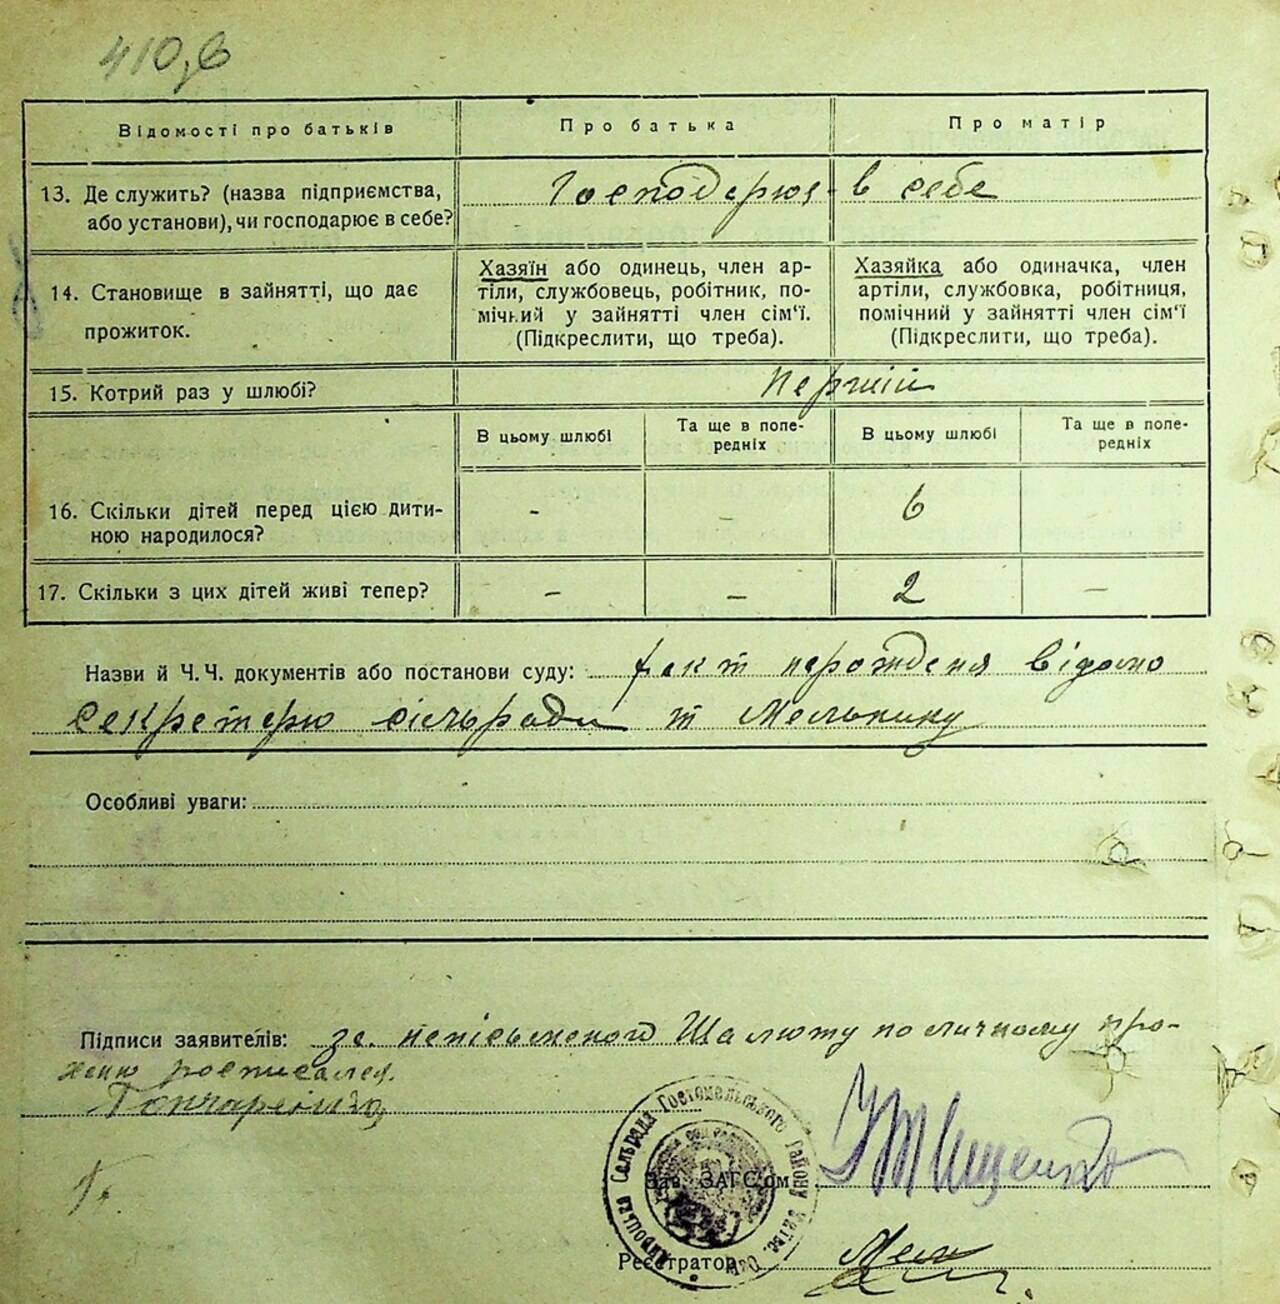 410,в
Відомості про батьків
Про батька
Про матір
13. Де служить? (назва підприємства,
або установи), чи господарює в себе?
Господарюя в себе
14. Становище в зайнятті, що дає
прожиток.
Хазяїн або одинець, член ар-
тіли, службовець, робітник, по-
мічний у зайнятті член сім'ї.
(Підкреслити, що треба).
Хазяйка або одиначка, член
артіли, службовка, робітниця,
помічний у зайнятті член сім'ї
(Підкреслити, що треба).
15. Котрий раз у шлюбі?
Перший
В цьому шлюбі
Та ще в попе-
редніх
В цьому шлюбі
Та ще в попе-
редніх
16. Скільки дітей перед цією дити-
ною народилося?
-
-
6
17. Скільки з цих дітей живі тепер?
-
-
2
-
Назви й Ч.Ч. документів або постанови суду: факт нарождення відомо
секретарю сільради т Мельнику
Особливі уваги:
Підписи заявителів: за непісьменого Шалюту по личному про-
хеню росписался
Гончаренко
Сельрада Гостомельського Району
Зав. ЗАГС'ом
Реєстратор